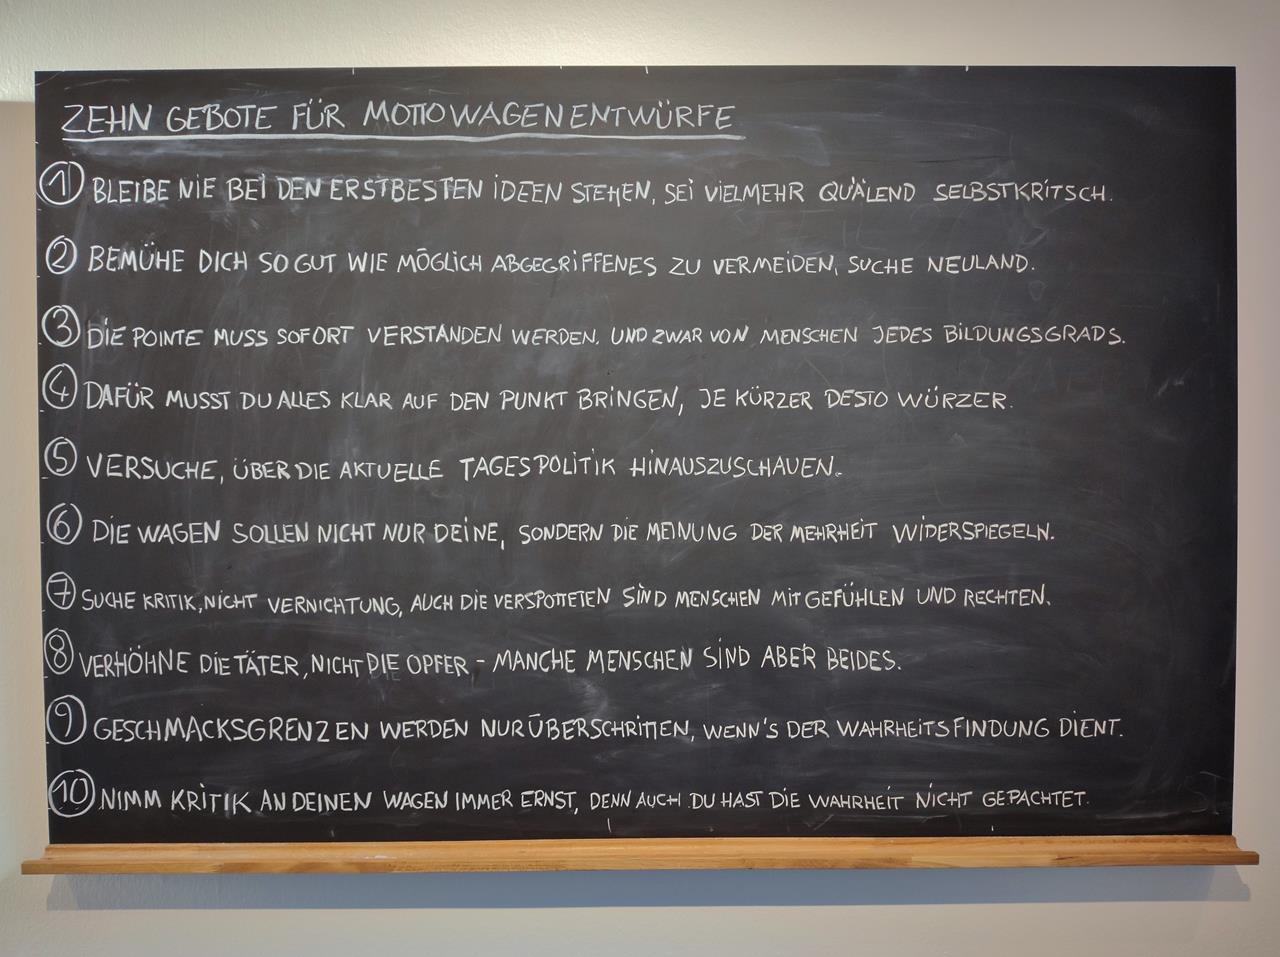 ZEHN GEBOTE FÜR MOTTOWAGENENTWÜRFE
1 BLEIBE NIE BEI DEN ERSTBESTEN IDEEN STEHEN, SEI VIELMEHR QUÄLEND SELBSTKRITSCH.
2 BEMÜHE DICH SO GUT WIE MÖGLICH ABGEGRIFFENES ZU VERMEIDEN, SUCHE NEULAND.
3 DIE POINTE MUSS SOFORT VERSTANDEN WERDEN. UND ZWAR VON MENSCHEN JEDES BILDUNGSGRADS.
4 DAFÜR MUSST DU ALLES KLAR AUF DEN PUNKT BRINGEN, JE KÜRZER DESTO WÜRZER.
5 VERSUCHE, ÜBER DIE AKTUELLE TAGESPOLITIK HINAUSZUSCHAUEN.
6 DIE WAGEN SOLLEN NICHT NUR DEINE, SONDERN DIE MEINUNG DER MEHRHEIT WIDERSPIEGELN.
7 SUCHE KRITIK, NICHT VERNICHTUNG, AUCH DIE VERSPOTTETEN SIND MENSCHEN MIT GEFÜHLEN UND RECHTEN.
8 VERHÖHNE DIE TÄTER, NICHT DIE OPFER - MANCHE MENSCHEN SIND ABER BEIDES.
9 GESCHMACKSGRENZEN WERDEN NUR ÜBERSCHRITTEN, WENN'S DER WAHRHEITSFINDUNG DIENT.
10 NIMM KRITIK AN DEINEN WAGEN IMMER ERNST, DENN AUCH DU HAST DIE WAHRHEIT NICHT GEPACHTET.